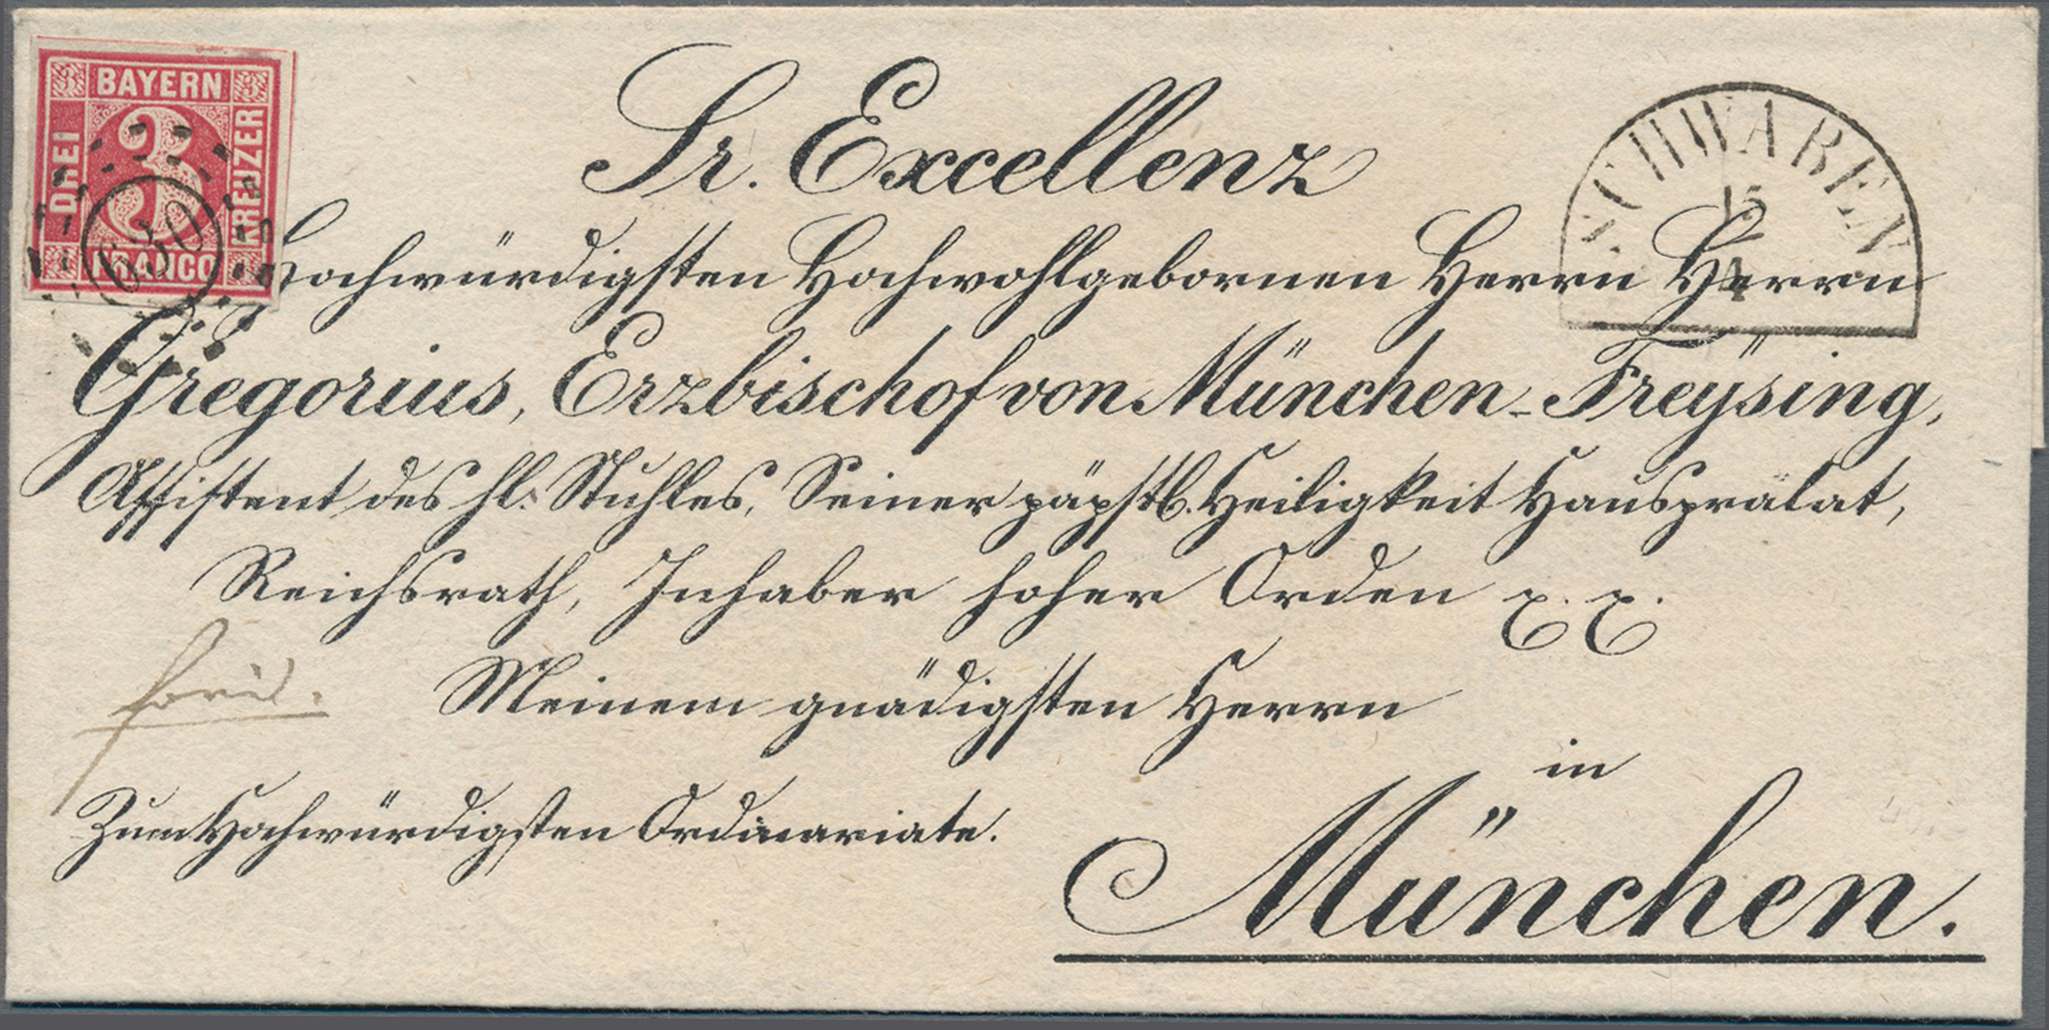 BAYERN
DREI
3
KREUZER
FRANCO
630
SCHWABEN
15
4
Sr. Excellenz
Hochwürdigsten Hochwohlgebornen Herrn Herrn
Gregorius, Erzbischof von München-Freÿsing,
Assistent des hl. Stuhles, Seiner päpstl. Heiligkeit Hausprälat,
Reichsrath, Inhaber hoher Orden
Meinem gnädigsten Herrn
in
Zum Hochwürdigsten Ordinariate.
München.